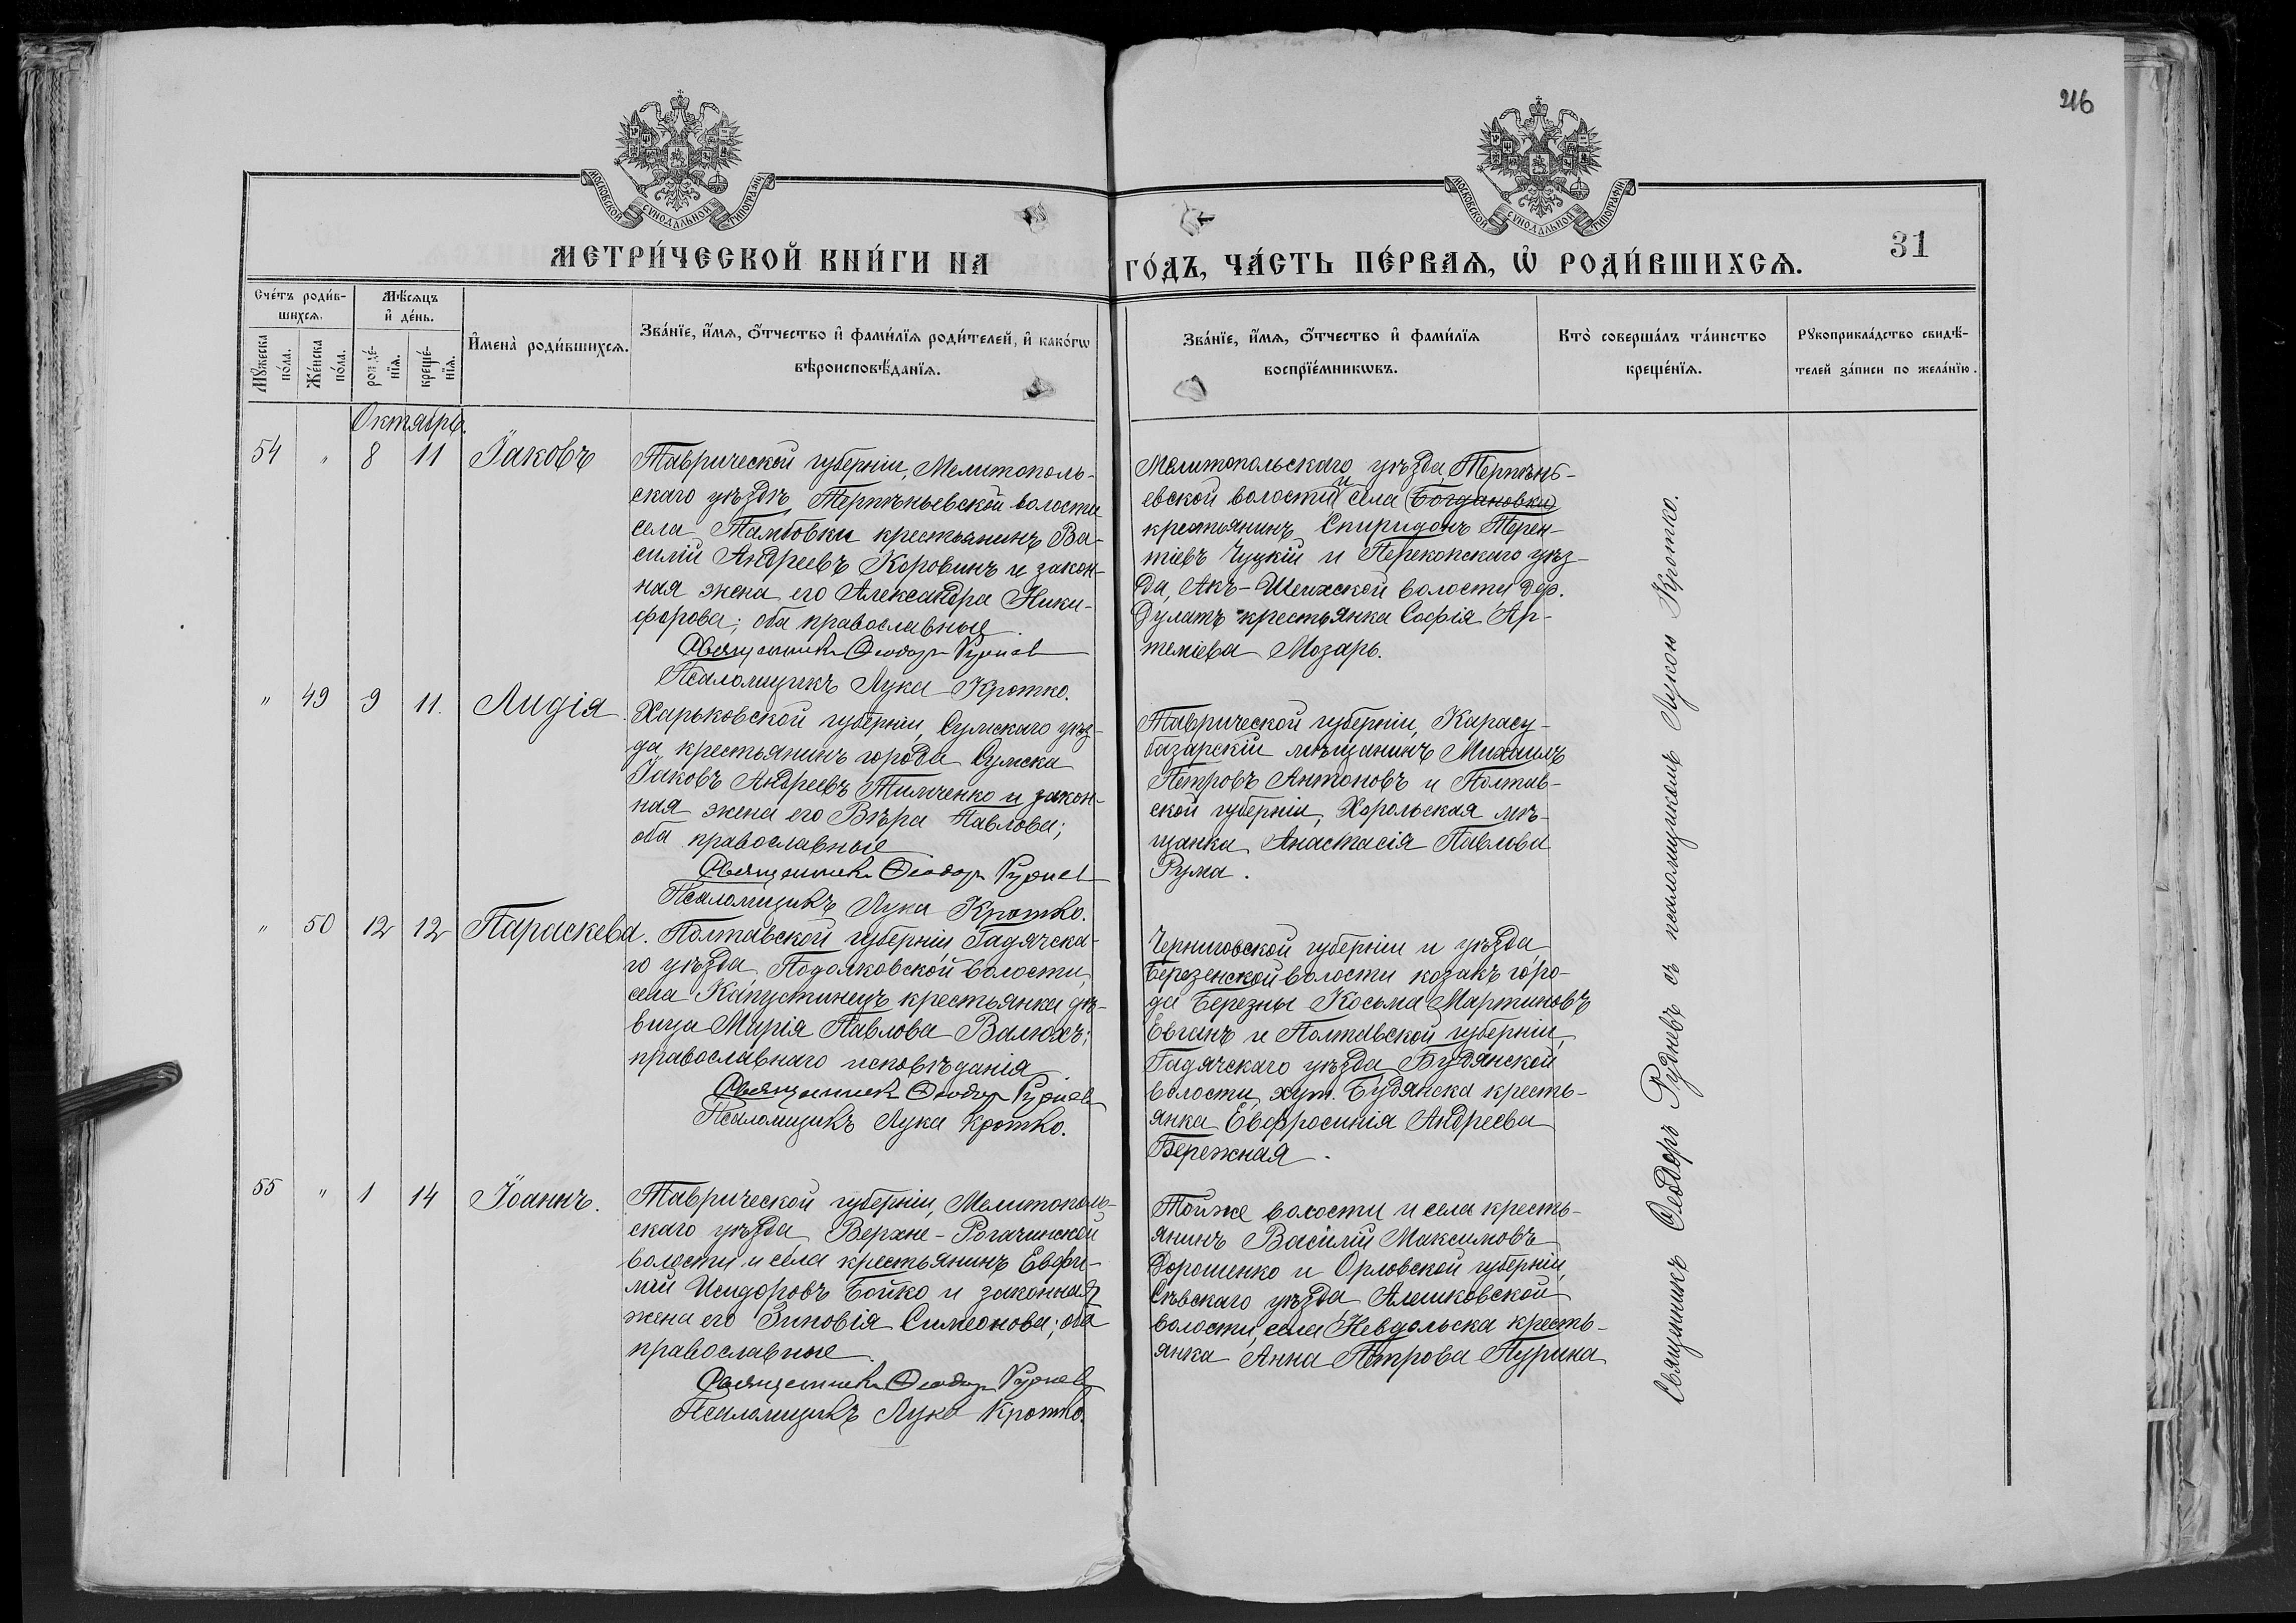 216
МОСКОВСКОЙ СѴНОДАЛЬНОЙ ТИПОГРАФІИ
МОСКОВСКОЙ СѴНОДАЛЬНОЙ ТИПОГРАФІИ
МЕТРИ́ЧЕСКОЙ КНИ́ГИ НА
ГО́ДЪ, ЧА́СТЬ ПЕ́РВАѦ, Ѡ҆ РОДИ́ВШИХСѦ.
31
Сче́тъ роди́в-
шихсѧ.
Мꙋ́жеска по́ла.
Же́нска по́ла.
Мѣ́сѧцъ
и҆ де́нь.
рожде́-
нїѧ.
креще́-
нїѧ.
И҆мена̀ роди́вшихсѧ.
Зва́нїе, и҆́мѧ, ѻ҆́тчество и҆ фами́лїѧ роди́телей, и҆ како́гѡ
вѣроисповѣ́данїѧ.
Зва́нїе, и҆́мѧ, ѻ҆́тчество и҆ фами́лїѧ
воспрїе́мникѡвъ.
Кто̀ соверша́лъ та́инство
креще́нїѧ.
Рꙋкоприкла́дство свидѣ́-
телей за́писи по жела́нїю.
Октябрь.
54 " 8 11 Іаковъ
Таврической губерніи, Мелитополь-
скаго уѣзда, Терпѣньевской волости
села Тамбовки крестьянинъ Ва-
силій Андреевъ Коровинъ и закон-
ная жена его Александра Ники-
форова; оба православные.
Священникъ Ѳеодоръ Рудневъ
Псаломщикъ Лука Кротко.
Мелитопольскаго уѣзда, Терпѣнь-
евской волости и села Богдановки
крестьянинъ Спиридонъ Терен-
тіевъ Чуцкій и Перекопскаго уѣз-
да, Акъ-Шеихской волости, дер.
Дулатъ крестьянка Софія Ар-
теміева Мозарь.
" 49 9 11. Лидія.
Харьковской губерніи, Сумскаго уѣз-
да крестьянинъ города Сумска
Іаковъ Андреевъ Тимченко и закон-
ная жена его Вѣра Павлова;
оба православные
Священникъ Ѳеодоръ Рудневъ
Псаломщикъ Лука Кротко.
Таврической губерніи, Карасу-
базарскій мѣщанинъ Михаилъ
Петровъ Антоновъ и Полтав-
ской губерніи, Хорольская мѣ-
щанка Анастасія Павлова
Рума.
" 50 12 12 Параскева.
Полтавской губерніи, Гадячска-
го уѣзда, Подолковской волости,
села Капустинецъ крестьянка дѣ-
вица Марія Павлова Валюхъ;
православнаго исповѣданія
Священникъ Ѳеодоръ Рудневъ
Псаломщикъ Лука Кротко.
Черниговской губерніи и уѣзда,
Березенской волости козакъ горо-
да Березны Косьма Мартиновъ
Евгинъ и Полтавской губерніи,
Гадячскаго уѣзда, Будянской
волости, хут. Будянска кресть-
янка Евфросинія Андреева
Бережная.
55 " 1 14 Іоаннъ.
Таврической губерніи, Мелитополь-
скаго уѣзда Верхне-Рогачинской
волости и села крестьянинъ Евфи-
мій Исидоровъ Бойко и законная
жена его Зиновія Симеонова; оба
православные.
Священникъ Ѳеодоръ Рудневъ
Псаломщикъ Лука Кротко.
Той же волости и села кресть-
янинъ Василій Максимовъ
Дорошенко и Орловской губерніи,
Сѣвскаго уѣзда, Алешковской
волости, села Невдольска кресть-
янка Анна Петрова Пурина
Священникъ Ѳеодоръ Рудневъ съ псаломщикомъ Лукою Кротко.